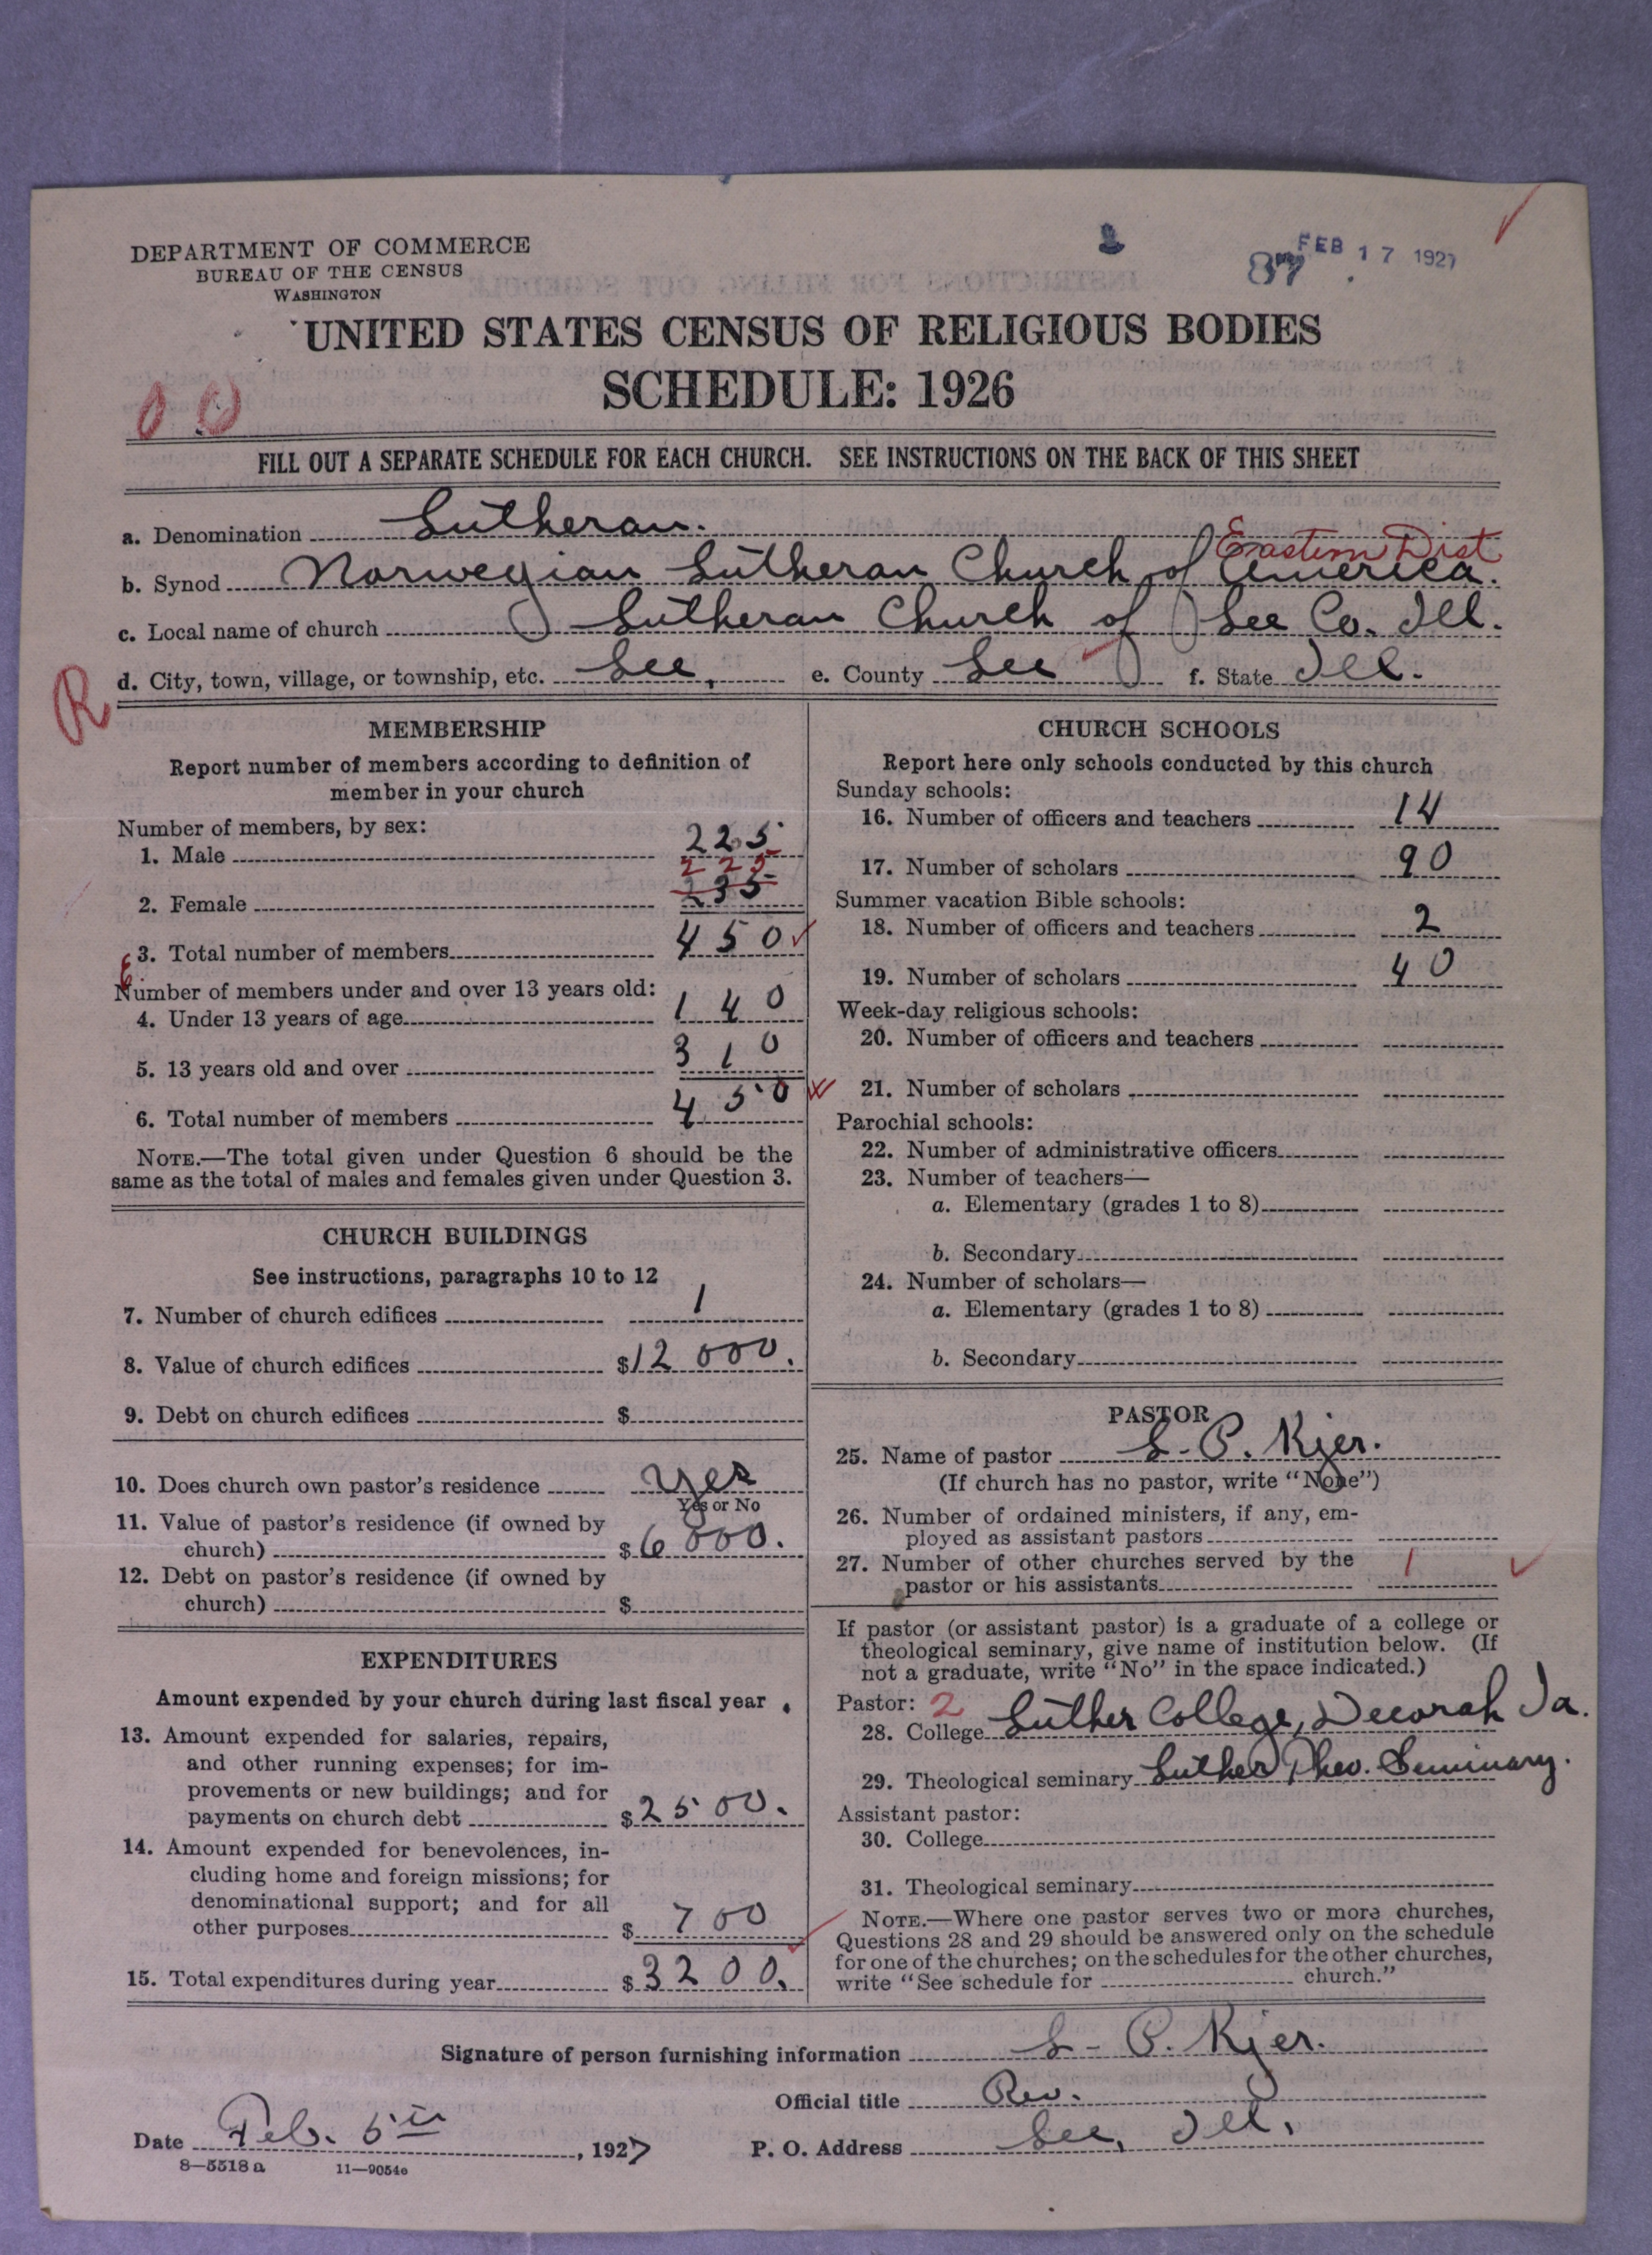 DEPARTMENT OF COMMERCE
BUREAU OF THE CENSUS
WASHINGTON
87
FEB 17 1927
UNITED STATES CENSUS OF RELIGIOUS BODIES
SCHEDULE: 1926
0 0
FILL OUT A SEPARATE SCHEDULE FOR EACH CHURCH. SEE INSTRUCTIONS ON THE BACK OF THIS SHEET
a. Denomination Lutheran.
Eastern Dist
b. Synod Norwegian Lutheran Church of America.
c. Local name of church Lutheran Church of Lee Co. Ill.
d. City, town, village, or township, etc. Lee, e. County Lee f. State Ill.
R
MEMBERSHIP
Report number of members according to definition of
member in your church
Number of members, by sex:
1. Male 225
225
2. Female 235
3. Total number of members 450
Number of members under and over 13 years old:
4. Under 13 years of age 140
5. 13 years old and over 310
6. Total number of members 450
NOTE.—The total given under Question 6 should be the
same as the total of males and females given under Question 3.
CHURCH BUILDINGS
See instructions, paragraphs 10 to 12
7. Number of church edifices 1
8. Value of church edifices $12 000.
9. Debt on church edifices $
10. Does church own pastor's residence Yes
Yes or No
11. Value of pastor's residence (if owned by
church) $6 000.
12. Debt on pastor's residence (if owned by
church) $
EXPENDITURES
Amount expended by your church during last fiscal year
13. Amount expended for salaries, repairs,
and other running expenses; for im-
provements or new buildings; and for
payments on church debt $2500.
14. Amount expended for benevolences, in-
cluding home and foreign missions; for
denominational support; and for all
other purposes $ 700
15. Total expenditures during year $3200.
CHURCH SCHOOLS
Report here only schools conducted by this church
Sunday schools:
16. Number of officers and teachers 14
17. Number of scholars 90
Summer vacation Bible schools:
18. Number of officers and teachers 2
19. Number of scholars 40
Week-day religious schools:
20. Number of officers and teachers
21. Number of scholars
Parochial schools:
22. Number of administrative officers
23. Number of teachers—
a. Elementary (grades 1 to 8)
b. Secondary
24. Number of scholars—
a. Elementary (grades 1 to 8)
b. Secondary
PASTOR
25. Name of pastor S. P. Kjer.
(If church has no pastor, write "None")
26. Number of ordained ministers, if any, em-
ployed as assistant pastors
27. Number of other churches served by the
pastor or his assistants 1
If pastor (or assistant pastor) is a graduate of a college or
theological seminary, give name of institution below. (If
not a graduate, write "No" in the space indicated.)
Pastor: 2
28. College Luther College, Decorah Ia.
29. Theological seminary Luther Theo. Seminary.
Assistant pastor:
30. College
31. Theological seminary
NOTE.—Where one pastor serves two or more churches,
Questions 28 and 29 should be answered only on the schedule
for one of the churches; on the schedules for the other churches,
write "See schedule for church."
Signature of person furnishing information S. P. Kjer.
Official title Rev.
Date Feb. 5th, 1927
P. O. Address Lee, Ill.
8—5518 a 11—9054c